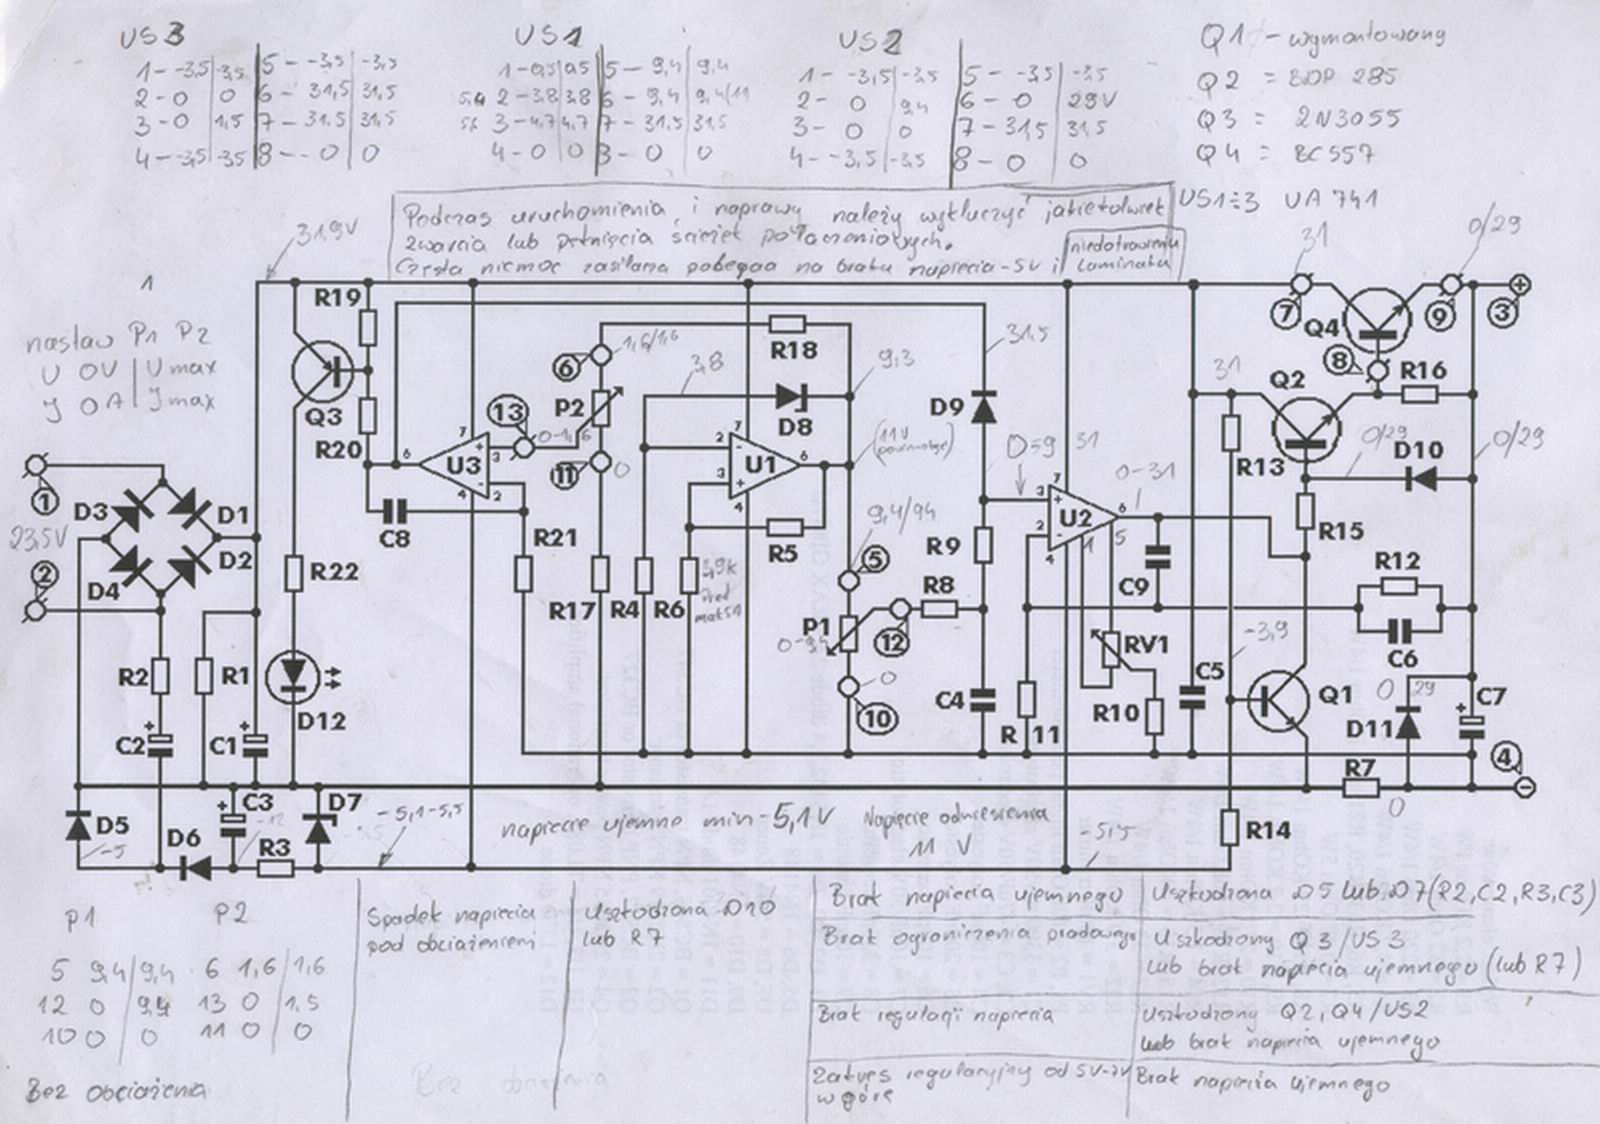 US3
1 - -3,5 | -3,5 | 5 - -3,5 | -3,5
2 - 0 | 0 | 6 - 31,5 | 31,5
3 - 0 | 1,5 | 7 - 31,5 | 31,5
4 - -3,5 | -3,5 | 8 - - 0 | 0
US1
1 - 0,5 | 0,5 | 5 - 9,4 | 9,4
2 - 3,8 | 3,8 | 6 - 9,4 | 9,4/11
3 - 4,7 | 4,7 | 7 - 31,5 | 31,5
4 - 0 | 0 | 8 - 0 | 0
US2
1 - -3,5 | -3,5 | 5 - -3,5 | -3,5
2 - 0 | 9,4 | 6 - 0 | 29V
3 - 0 | 0 | 7 - 31,5 | 31,5
4 - -3,5 | -3,5 | 8 - 0 | 0
Q1 - wymontowany
Q2 = BDP 285
Q3 = 2N3055
Q4 = BC557
US1÷3 UA 741
Podczas uruchomienia i naprawy należy wykluczyć jakiekolwiek
zwarcia lub pęknięcia ścieżek połączeniowych.
Częsta niemoc zasilacza polega na braku napięcia -5V i niedotrawieniu
laminatu
31,9V
31
0/29
1
nastaw P1 P2
U 0V | U max
J 0A | J max
R19
Q3
R20
U3
7
6
4
3
2
+
-
C8
13
0-1,6
6
1,6/1,6
P2
11
0
R18
3,8
D8
9,3
(11V
U1
2
3
7
6
4
-
+
R5
R21
R17
R4
R6
3,9k
5
9,4/94
P1
12
0
10
R8
R9
D9
31,5
31
0-31
U2
3
2
7
6
4
1
5
+
-
C9
RV1
R10
R 11
C4
C5
7
Q4
8
9
3
+
31
Q2
R16
R13
0/29
D10
0/29
R15
R12
C6
-3,9
Q1
0
29
D11
C7
+
R7
0
4
-
R14
1
23,5V
2
D3
D1
D4
D2
R2
R1
C2
+
C1
+
R22
D12
D5
-5
D6
C3
+
-12
R3
D7
-5,1-5,5
napięcie ujemne min -5,1V
Napięcie odniesienia
11 V
-5,5
P1 P2
5 9,4/9,4 6 1,6/1,6
12 0 9,4 13 0 1,5
10 0 0 11 0 0
Bez obciążenia
Spadek napięcia
pod obciążeniem
Uszkodzona D10
lub R7
Bez obciążenia
Brak napięcia ujemnego
Uszkodzona D5 lub D7(R2,C2,R3,C3)
Brak ograniczenia prądowego
Uszkodzony Q3/US3
lub brak napięcia ujemnego (lub R7)
Brak regulacji napięcia
Uszkodzony Q2,Q4/US2
lub brak napięcia ujemnego
Zakres regulacyjny od 5V-7V
w górę
Brak napięcia ujemnego